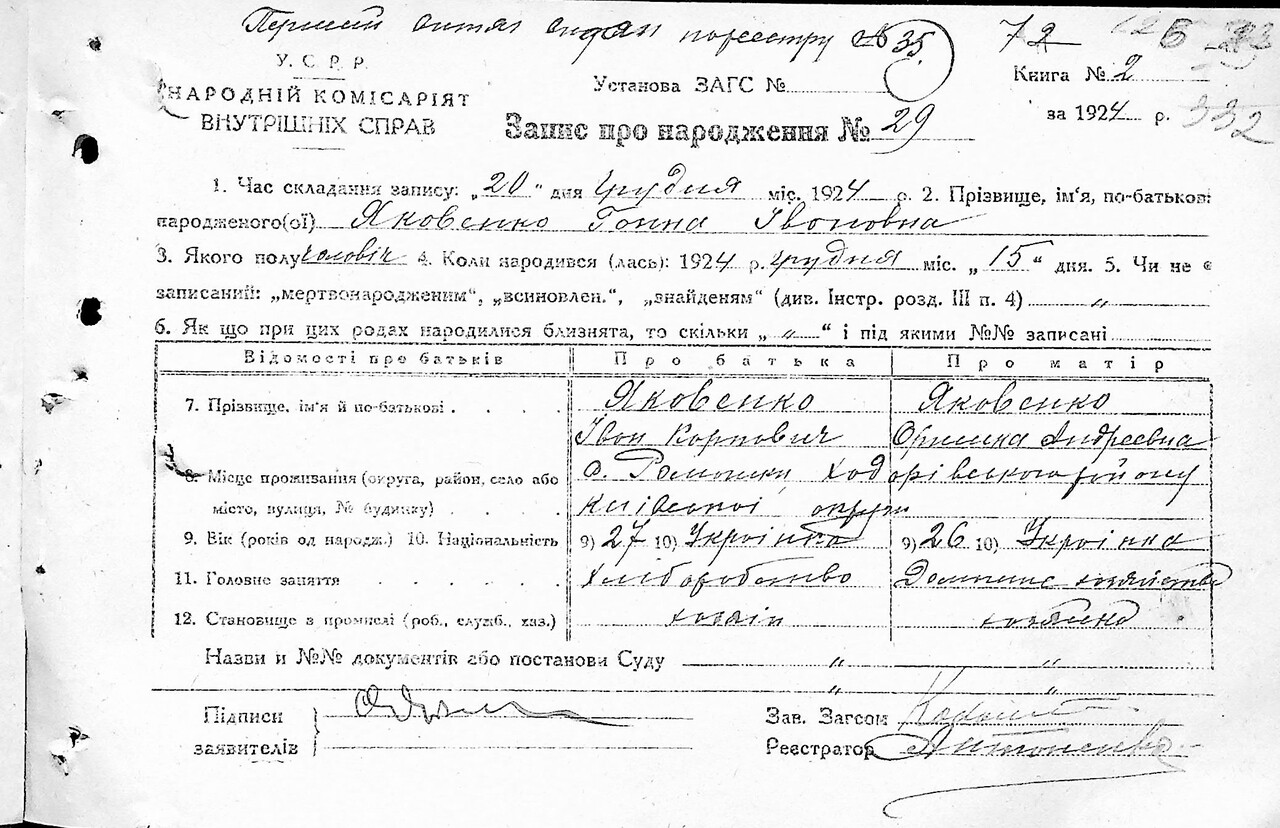 Перший витяг видан по реєстру № 35.
72
У. С. Р. Р.
НАРОДНІЙ КОМІСАРІЯТ
ВНУТРІШНІХ СПРАВ
Установа ЗАГС №
Книга № 2
за 1924 р. 332
Запис про народження № 29
1. Час складання запису: „20“ дня грудня міс. 1924 р. 2. Прізвище, ім'я, по-батькові
народженого(ої) Яковенко Ганна Івановна
3. Якого полу чоловіч 4. Коли народився (лась): 1924 р. грудня міс. „15“ дня. 5. Чи не є
записаний: „мертвонародженим“, „всиновлен.“, „знайденям“ (див. Інстр. розд. III п. 4) „
6. Як що при цих родах народилися близнята, то скільки „ „ “ і під якими №№ записані
Відомості про батьків Про батька Про матір
7. Прізвище, ім'я й по-батькові . . . . . Яковенко Яковенко
Іван Карпович Оришка Андреевна
8. Місце проживання (округа, район, село або с. Ромашки, Ходорівського району
місто, вулиця, № будинку) . . . . . Київської округи
9. Вік (років од народж.) 10. Національність 9) 27 10) Украінка 9) 26 10) Украінка
11. Головне заняття . . . . . Хліборобство Домашнє хозяйство
12. Становище з промислі (роб., служб., хаз.) хозяін хозяйка
Назви и №№ документів або постанови Суду „ „
„ „
Підписи
заявителів
Зав. Загсом
Реєстратор Антоненко